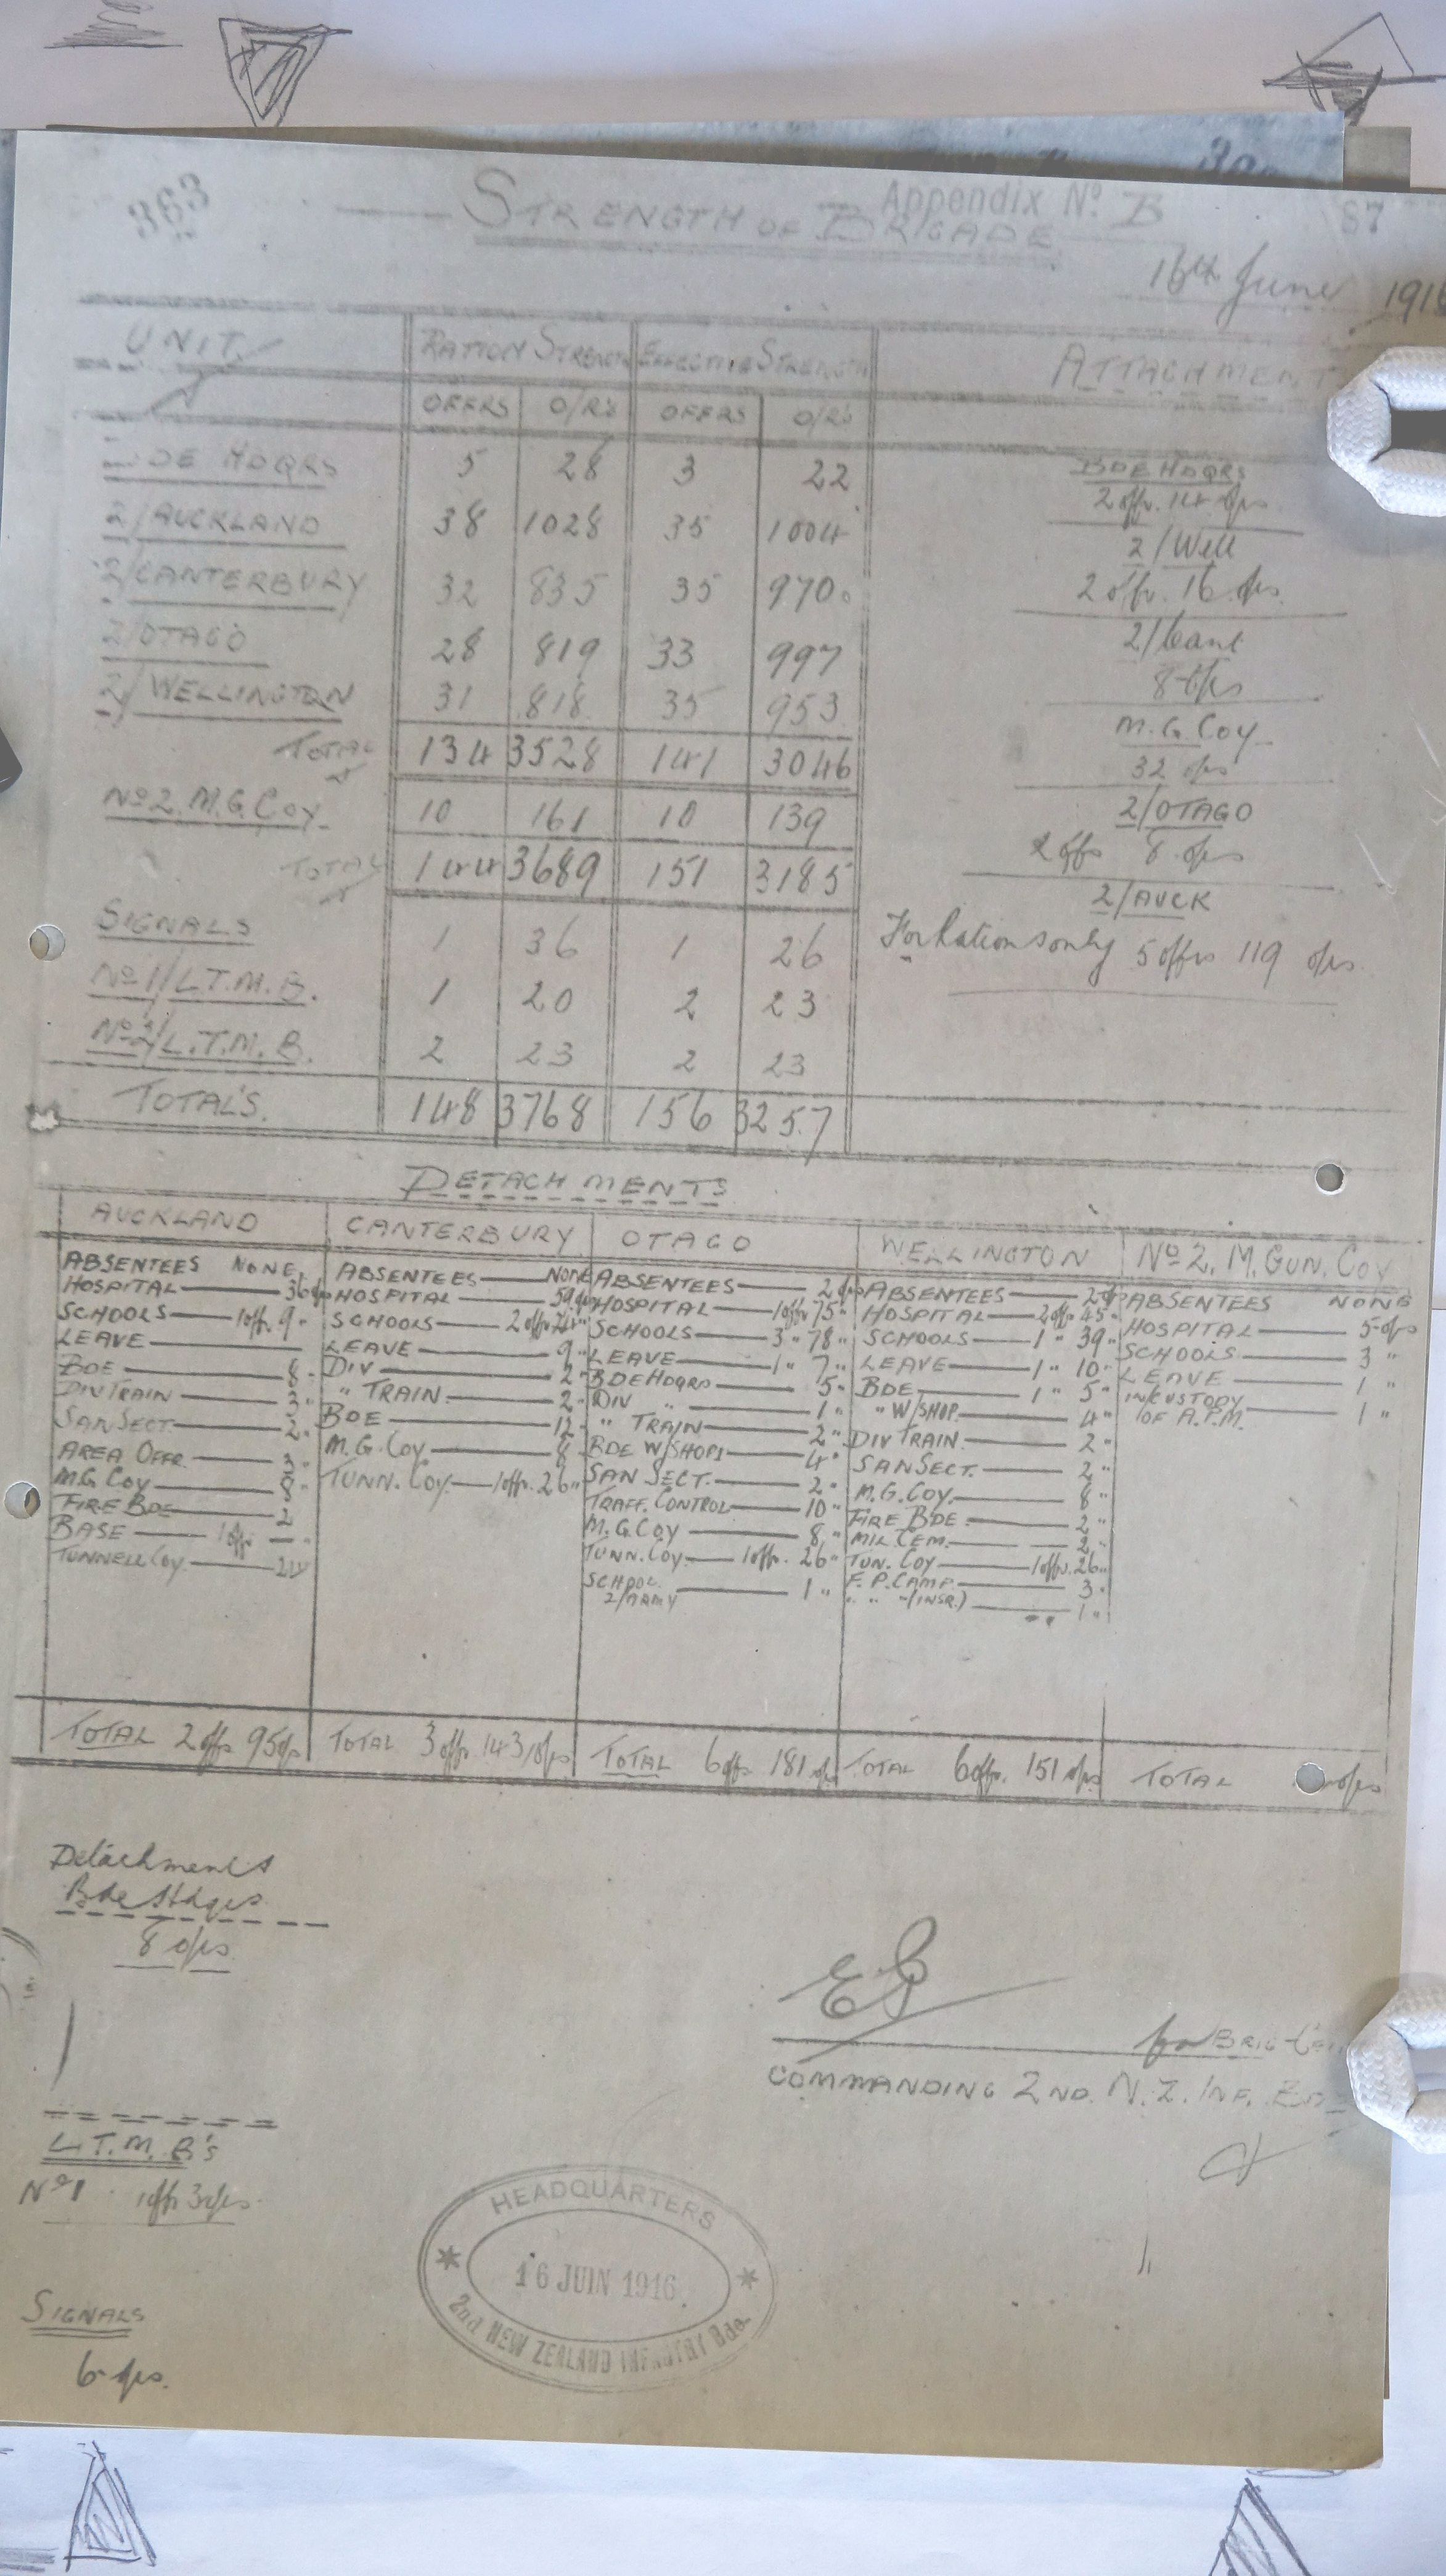 363
Appendix No. B
67
STRENGTH OF BRIGADE
16th June 191
UNIT. RATION STRENGTH EFFECTIVE STRENGTH ATTACHMENT
OFFRS O/R's OFFRS O/R's
DE HDQRS 5 28 3 22
2/AUCKLAND 38 1028 35 1004
2/CANTERBURY 32 835 35 970
2/OTAGO 28 819 33 997
2/WELLINGTON 31 818 35 953
TOTAL 134 3528 141 3046
No 2. M.G. Coy 10 161 10 139
TOTAL 144 3689 151 3185
SIGNALS 1 36 1 26
No 1/L.T.M.B. 1 20 2 23
No 2/L.T.M.B. 2 23 2 23
TOTAL'S. 148 3768 156 3257
BDE HDQRS
2 offr. 14 o/rs
2/Well
2 offr. 16 o/rs.
2/Cant
8 o/rs
M.G. Coy
32 o/rs
2/OTAGO
2 offs 8 o/rs
2/AUCK
For Rations only 5 offrs 119 o/rs.
DETACHMENTS
AUCKLAND
ABSENTEES NONE.
HOSPITAL 36 o/rs
SCHOOLS 1 offr. 9 "
LEAVE
BDE 8 "
DIV TRAIN 3 "
SAN SECT. 2 "
AREA OFFR. 3 "
M.G. Coy 8 "
FIRE BDE 2
BASE 1 offr. — "
TUNNELL Coy.
TOTAL 2 offs 95 o/rs
CANTERBURY
ABSENTEES NONE
HOSPITAL 59 o/rs
SCHOOLS 2 offr
LEAVE 9 "
DIV 2 "
" TRAIN 2 "
BDE 12 "
M.G. Coy 8 "
TUNN. Coy. 1 offr. 26 "
TOTAL 3 offr. 143 o/rs
OTAGO
ABSENTEES 2 o/rs
HOSPITAL 1 offr 75 "
SCHOOLS 3 " 78 "
LEAVE 1 " 7 "
BDE HDQRS 5 "
DIV " 1 "
" TRAIN 2 "
BDE W/SHOPS 4 "
SAN SECT. 2 "
TRAFF. CONTROL 10 "
M.G. Coy 8 "
TUNN. Coy. 1 offr. 26 "
SCHOOL
2/ARMY 1 "
TOTAL 6 offs. 181 o/rs
WELLINGTON
ABSENTEES 2 o/rs
HOSPITAL 2 offr. 45 "
SCHOOLS 1 " 39 "
LEAVE 1 " 10 "
BDE 1 " 5 "
" W/SHOP. 4 "
DIV TRAIN. 2 "
SAN SECT. 2 "
M.G. Coy. 8 "
FIRE BDE 2 "
MIL CEM. 2 "
TUN. Coy 1 offr. 26 "
F.P. CAMP 3 "
" " (INSR.) 1 "
TOTAL 6 offs. 151 o/rs
No 2. M. GUN. Coy
ABSENTEES NONE
HOSPITAL 5 o/rs
SCHOOLS 3 "
LEAVE 1 "
IN CUSTODY
OF A.P.M. 1 "
TOTAL o/rs
Detachments
Bde Hdqrs
8 o/rs
for BRIG
COMMANDING 2ND. N.Z. INF.
L.T.M.B's
No 1 1 offr 3 o/rs
SIGNALS
6 o/rs.
HEADQUARTERS
16 JUIN 1916
2nd NEW ZEALAND INFANTRY Bde